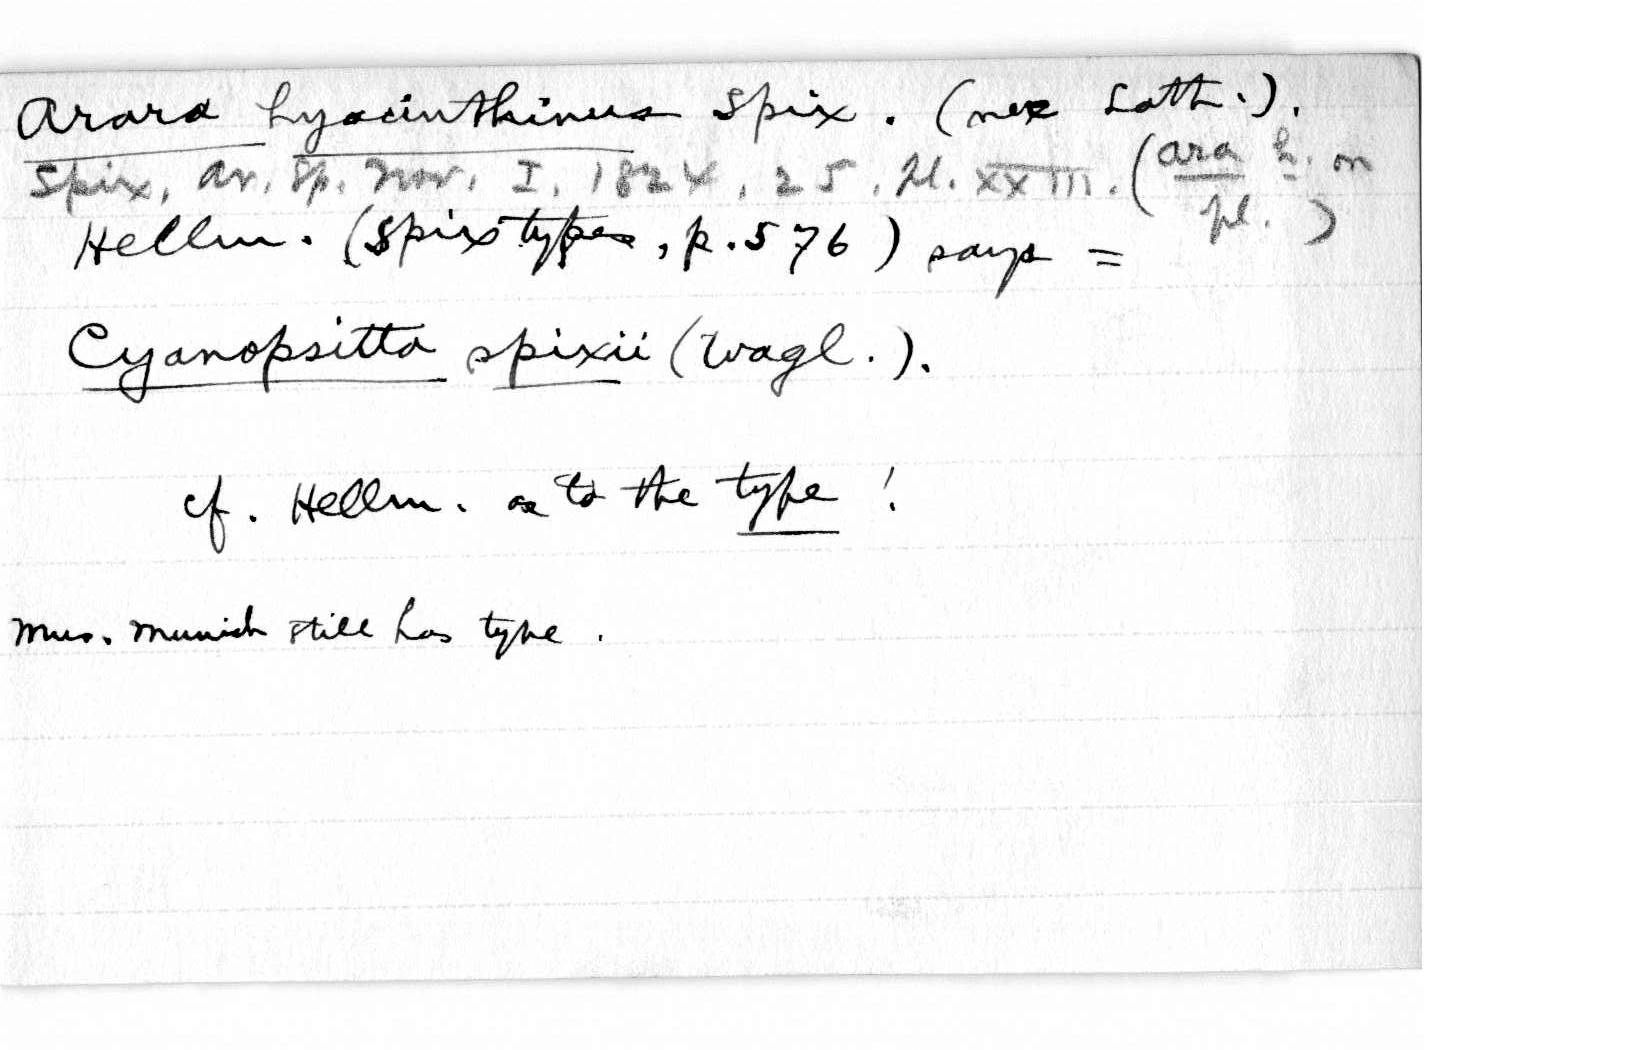 Arara hyacinthinus Spix. (nec Lath.).
Spix, Av. Sp. Nov. I, 1824, 25, Pl. XXIII. (Ara h. on pl.)
Hellm. (Spix types, p. 576) says =
Cyanopsitta spixii (Wagl.).
cf. Hellm. as to the type!
Mus. Munich still has type.